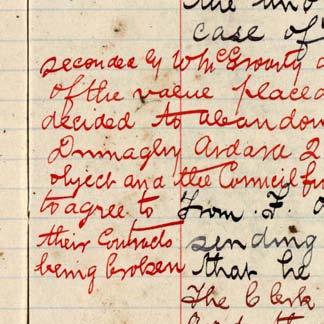 case of
seconded by W McGroarty
of the value placed
decided to abandon
Drumaghy Ardara 2
object and the Council
to agree to From F.
their Contracts sending
being broken that he
The Clerk